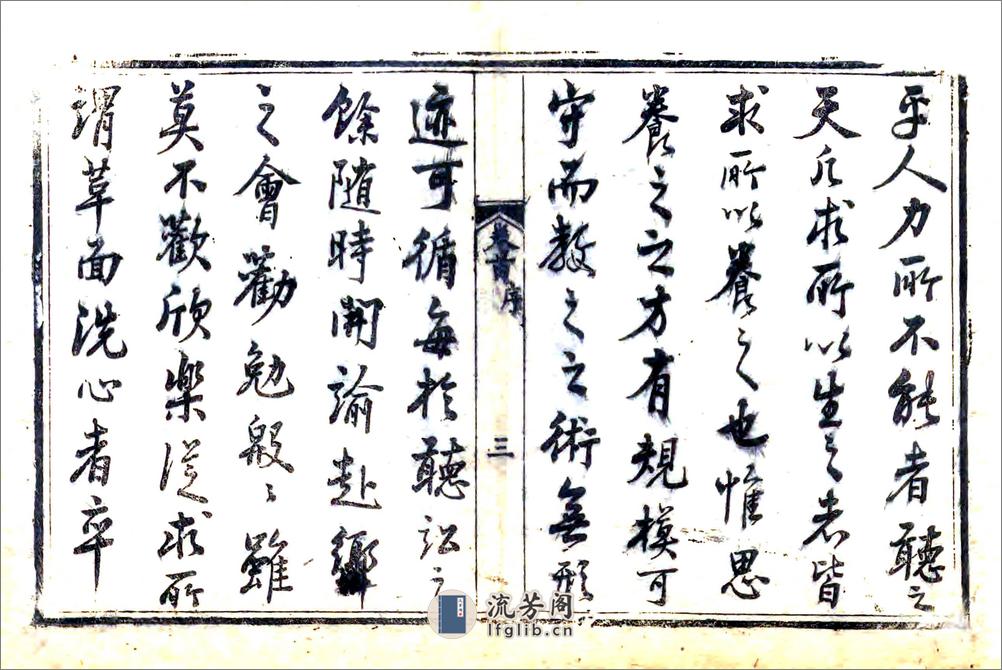 乎人力所不能者聽之
天凡求所以生之者皆
求所以養之也惟思
養之之方有規模可
守而教之之術無形
卷首 序 三
迹可循每於聽訟之
餘随時開諭赴鄉
之會勸勉殷〻雖
莫不歡欣樂從求所
謂革面洗心者卒
流芳阁
lfglib.cn